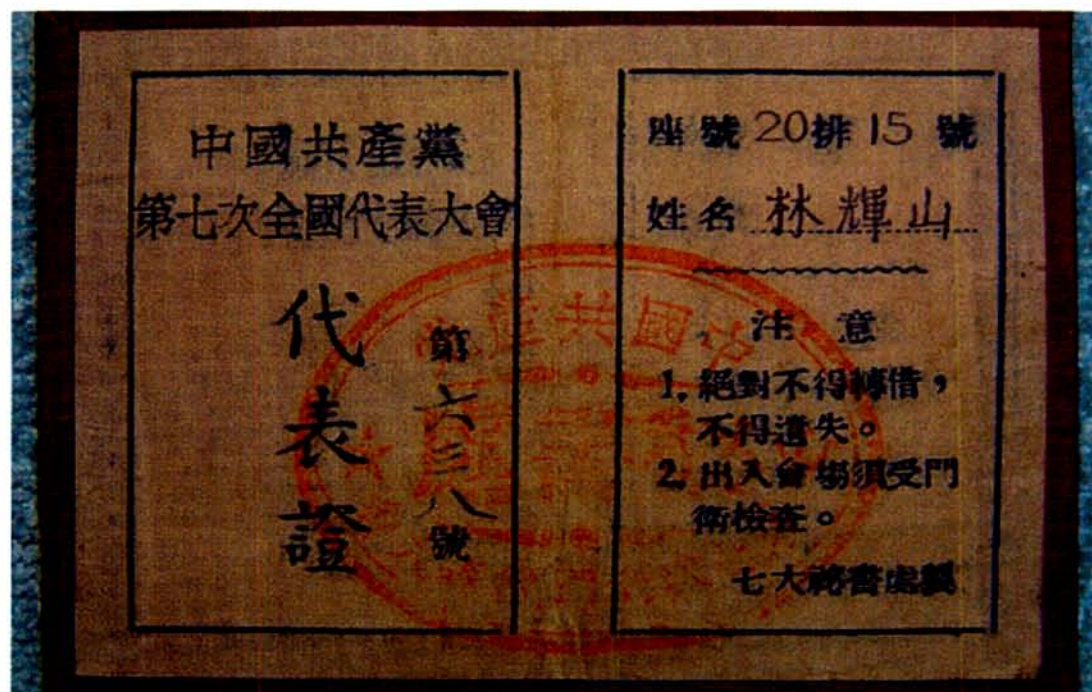 中國共產黨
第七次全國代表大會
代表證
第六三八號
座號20排15號
姓名 林輝山
注意
1. 絕對不得轉借，
不得遺失。
2. 出入會場須受門
衛檢查。
七大祕書處製
產共國